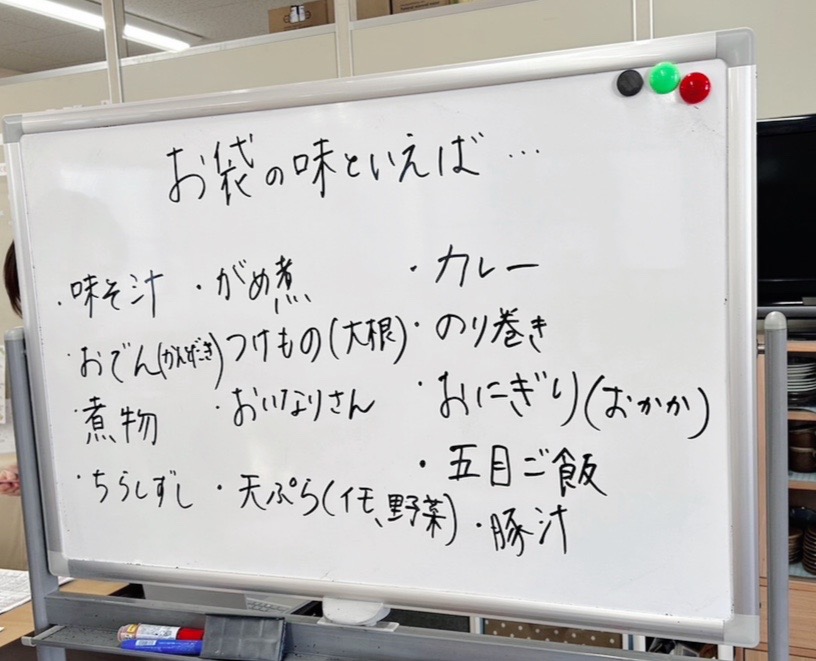 お袋の味といえば…
・味そ汁
・おでん(かんだき)
・煮物
・ちらしずし
・がめ煮
つけもの(大根)
・おいなりさん
・天ぷら(イモ、野菜)
・カレー
・のり巻き
・おにぎり(おかか)
・五目ご飯
・豚汁